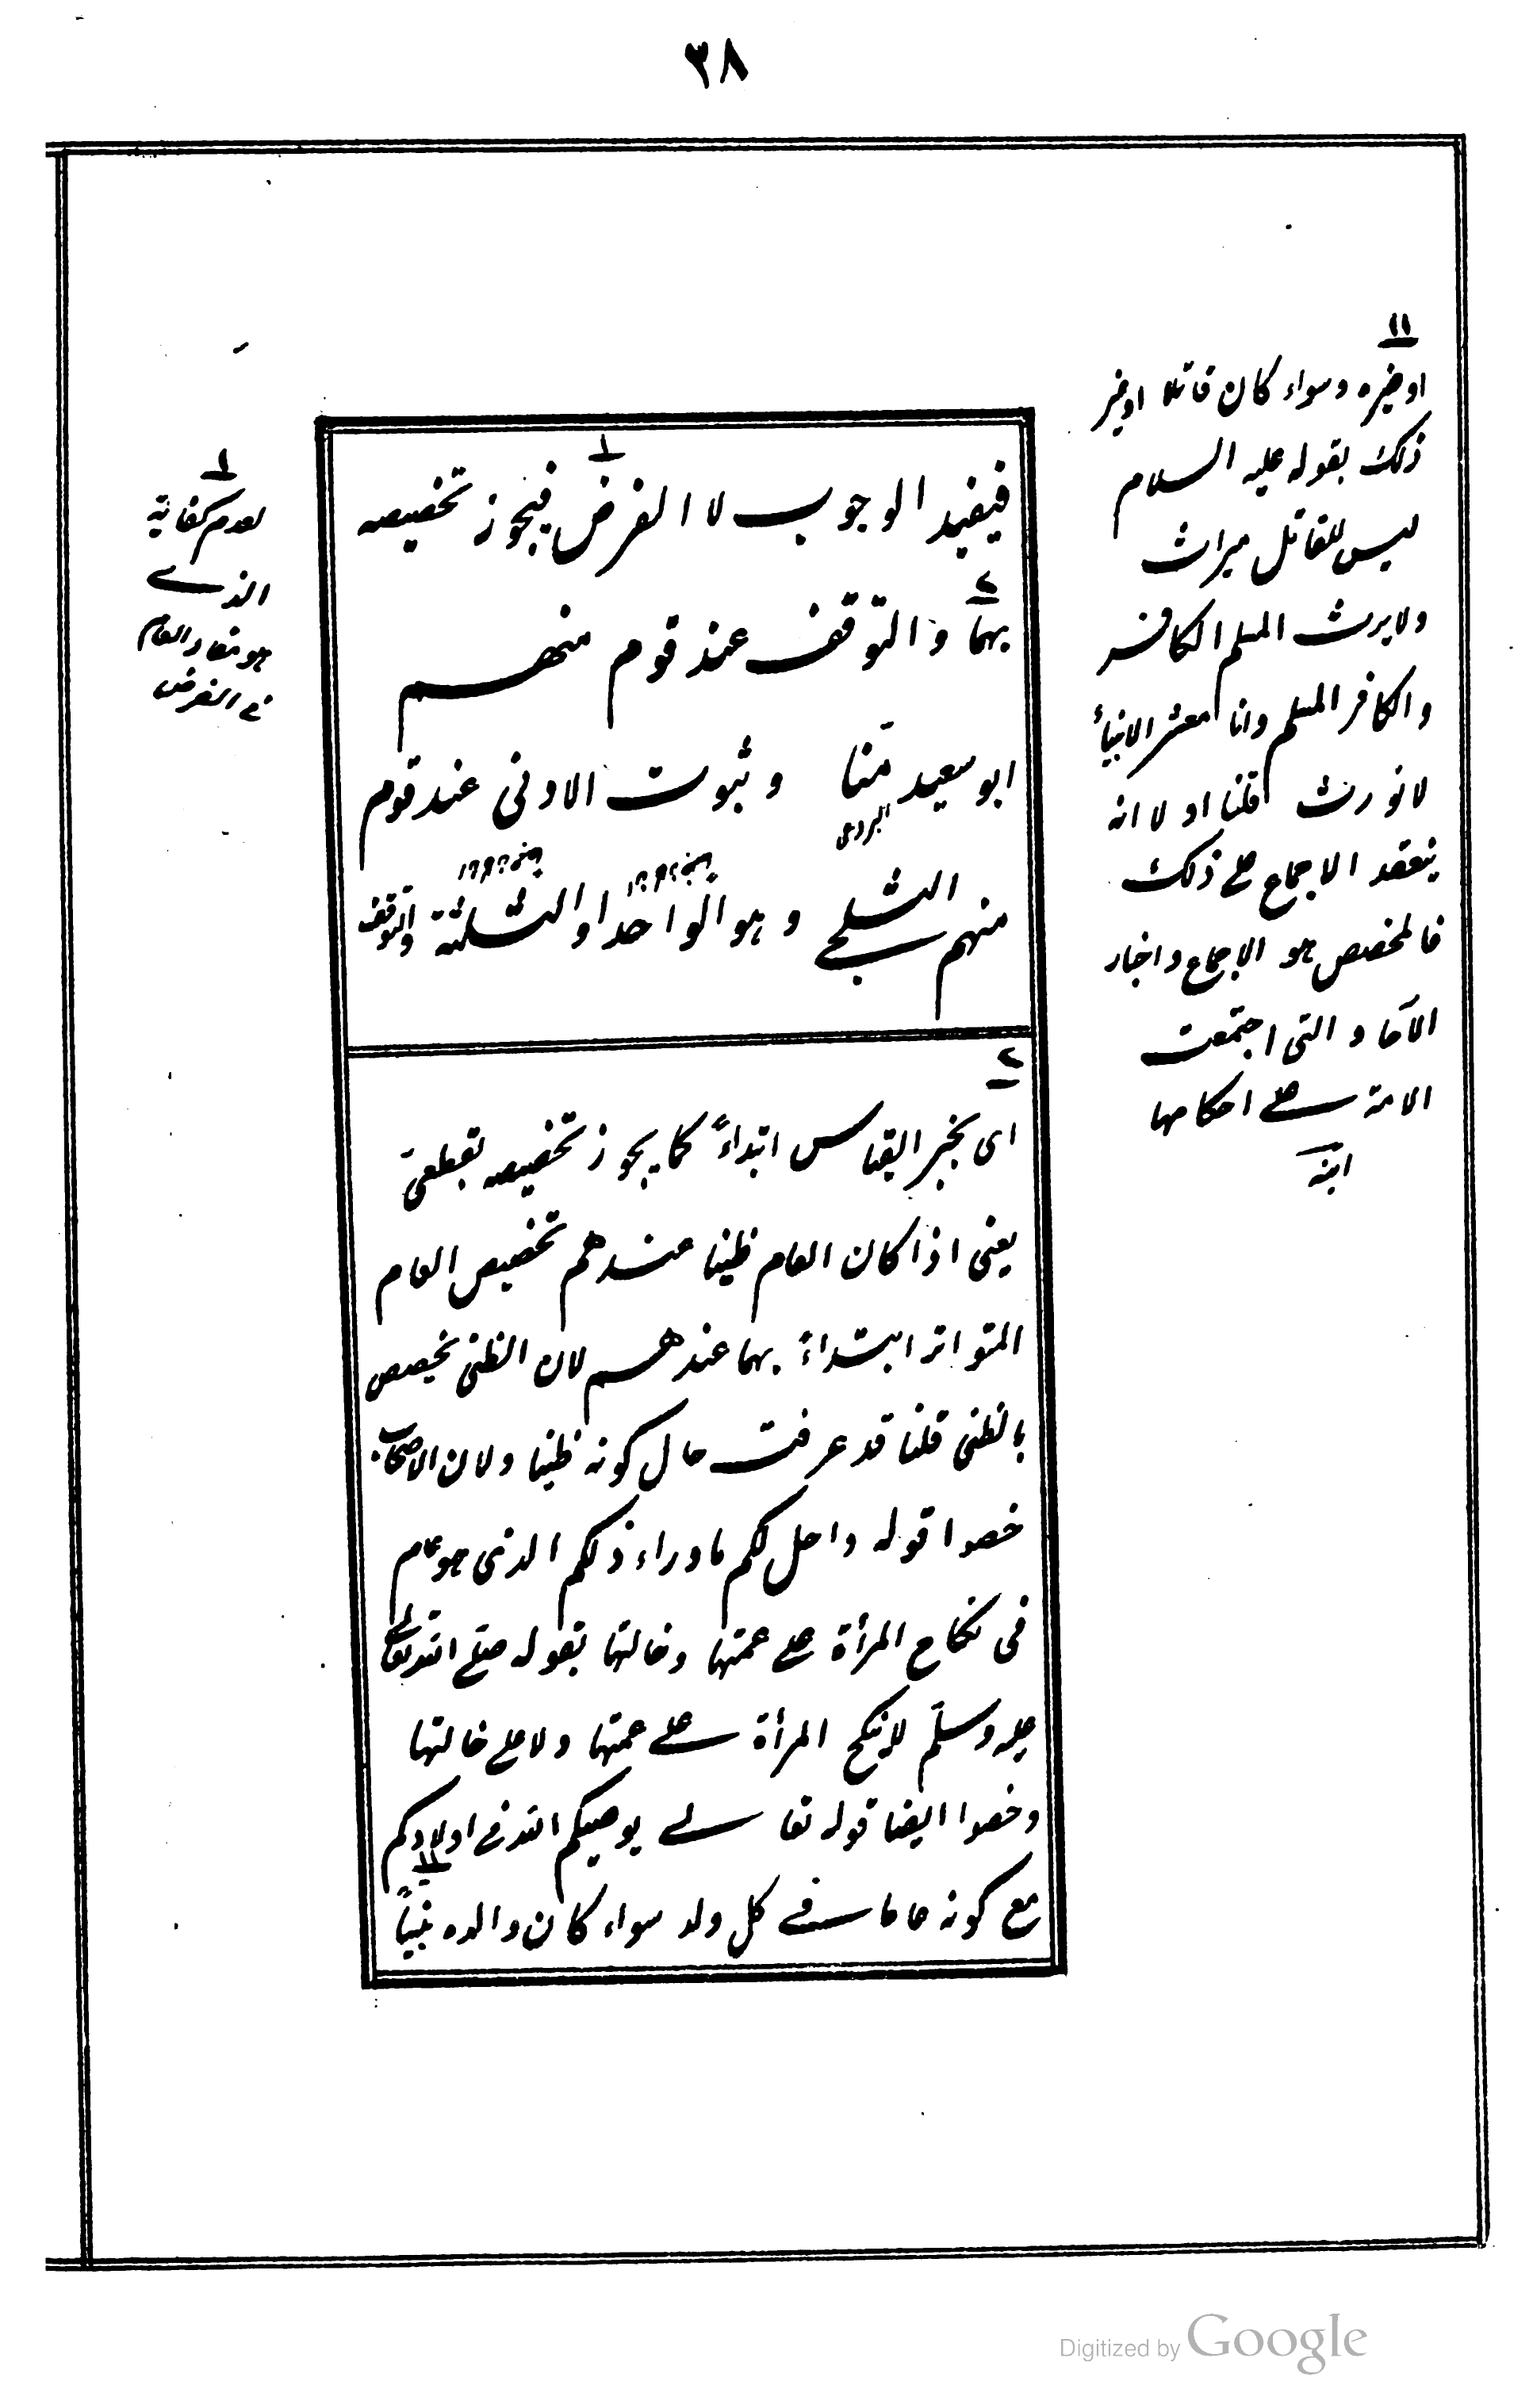 ٣٨
١
فيفيد الوجوب لا الفرض فيجوز تخصيصه
٢
بهما والتوقف عند قوم منهم
ابو سعيد منا وثبوت الادنى عند قوم
البردعى
منهم الثلجى وهو الواحد او الثلثة والتوقف
٢
اى بخبر القياس ابتداءً كما يجوز تخصيصه بقطعى
يعنى اذا كان العام ظنيا عندهم تخصيص العام
المتواتر ابتداءً بهما عندهم لان الظنى يخصص
بالظنى قلنا قد عرفت حال كونه ظنيا ولان الاصحاب
خصوا قوله واحل لكم ما وراء ذلكم الذى هو عام
فى نكاح المرأة على عمتها وخالتها بقوله صلى الله تعالى
عليه وسلم لا تنكح المرأة على عمتها ولا على خالتها
وخصوا ايضا قوله تعالى يوصيكم الله فى اولادكم
١١
مع كونه عاما فى كل ولد سواء كان والده نبياً
١١
او غيره وسواء كان قاتلا او غير
ذلك بقوله عليه السلام
ليس للقاتل ميراث
ولا يرث المسلم الكافر
والكافر المسلم وانا معشر الانبياء
لا نورث قلنا او لا انه
ينعقد الاجماع على ذلك
فالمخصص هو الاجماع واخبار
الآحاد التى اجتمعت
الامة على احكامها
١
لعدم كفاية
الذى
هو مفاد العام
فى الفرض
Digitized by Google